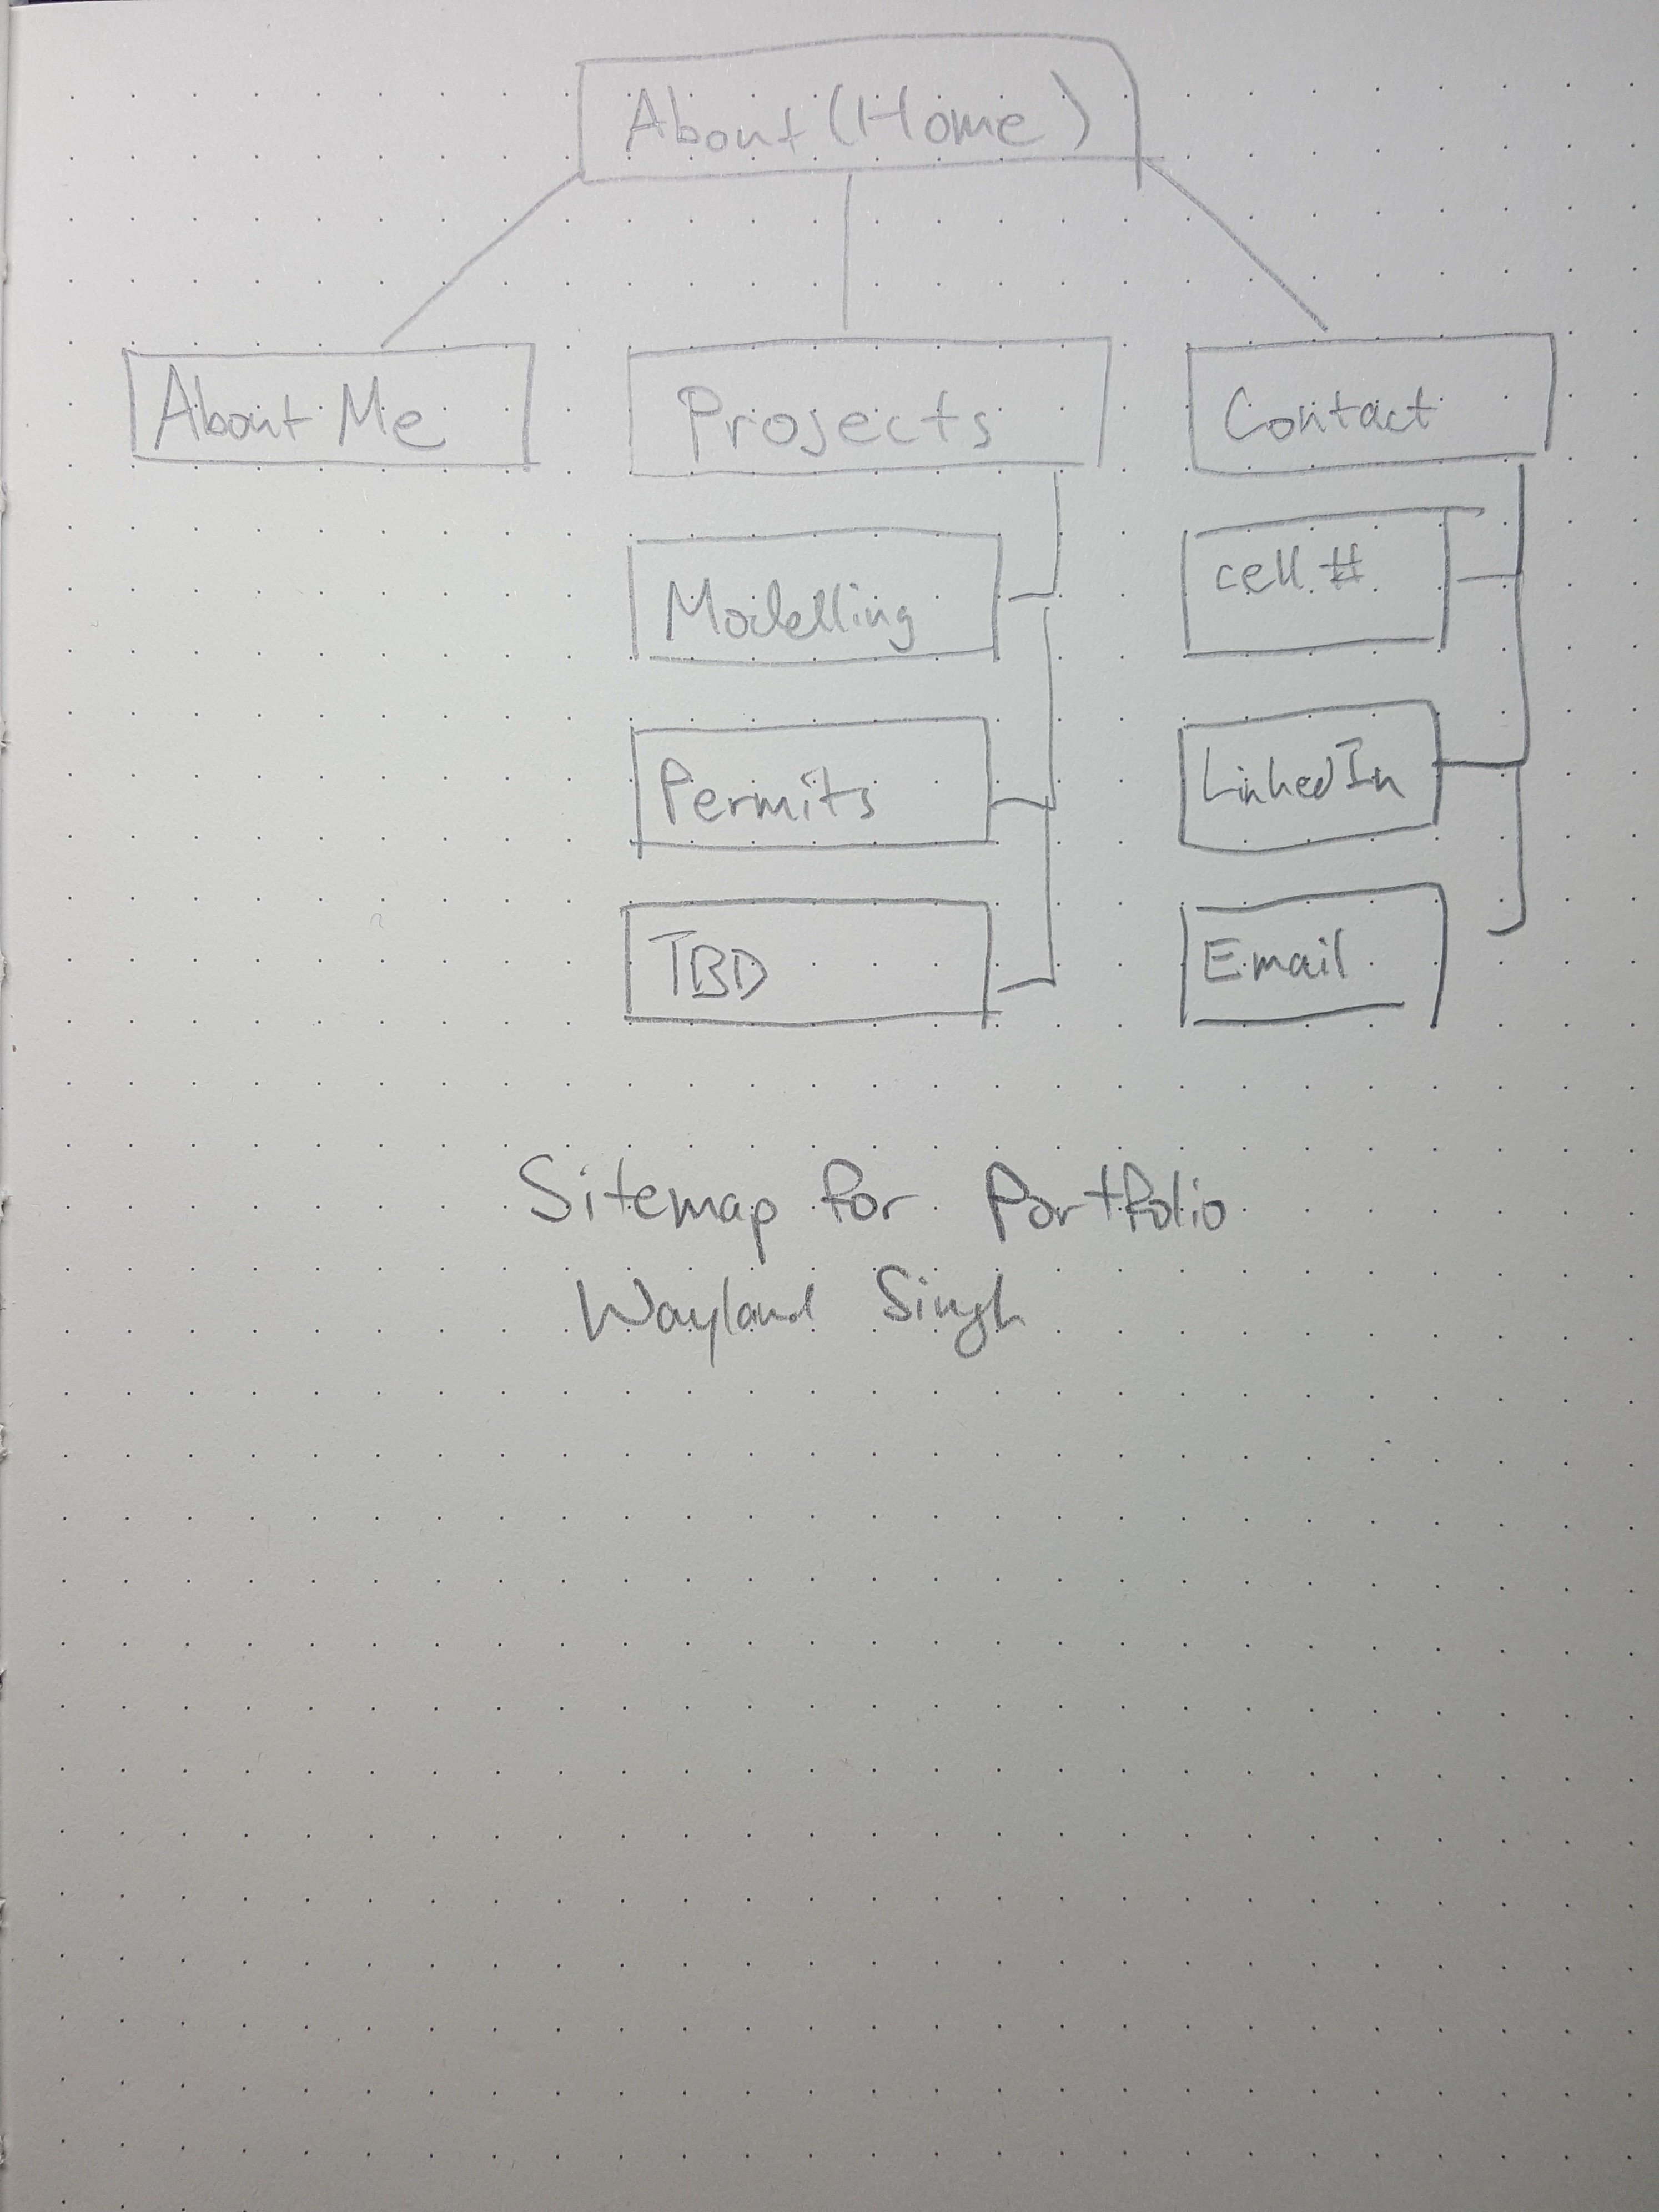 About (Home)
About Me
Projects
Contact
Modelling
cell #
Permits
LinkedIn
TBD
Email
Sitemap for Portfolio
Wayland Singh